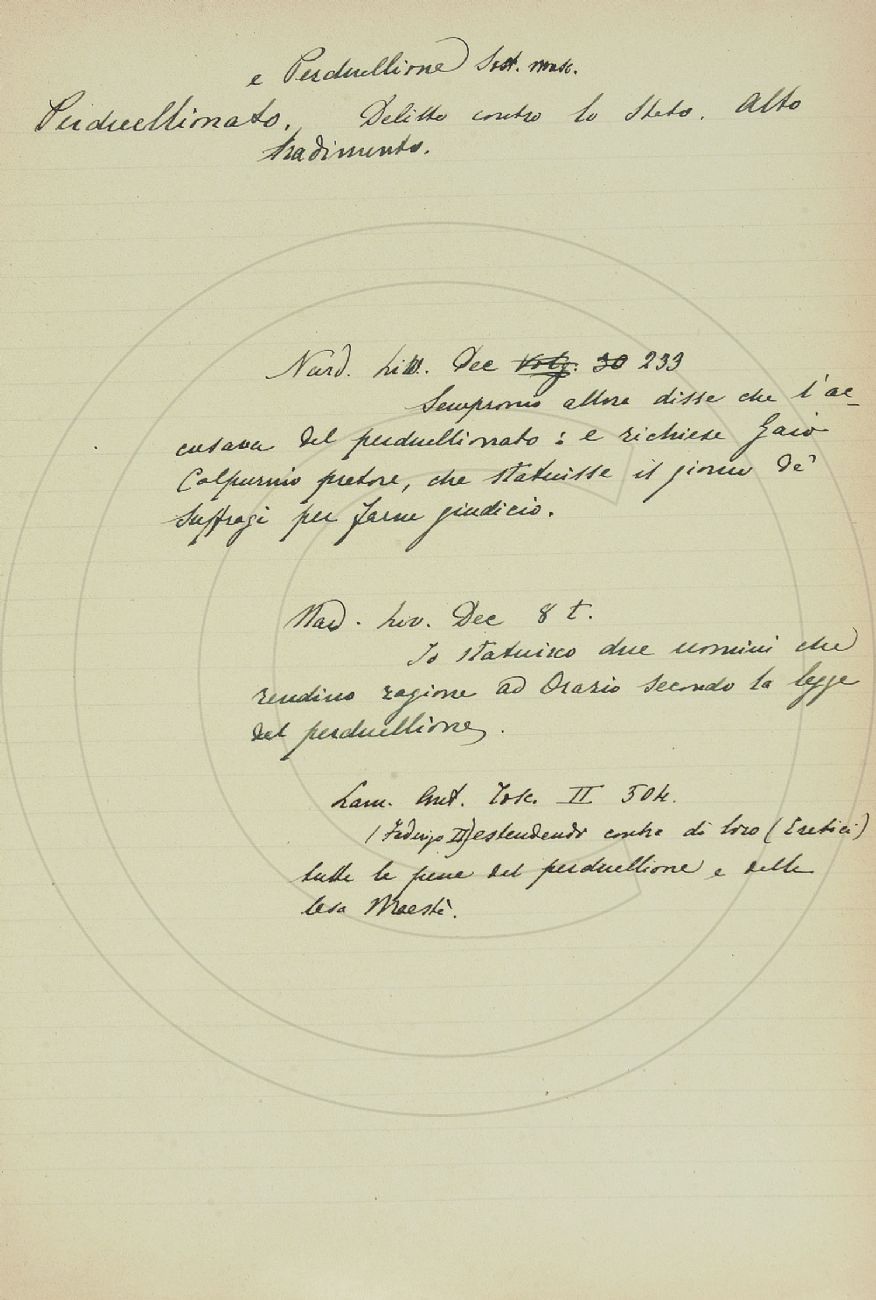 e Perduellione Sost. masc.
Perduellionato. Delitto contro lo Stato. Alto
tradimento.
Nard. Liv. Dec 233
Sempronio allora disse che l'ac-
cusava del perduellionato: e richiese Gaio
Calpurnio pretore, che statuisse il giorno de'
suffragi per farne giudicio.
Nard. Liv. Dec 8 t.
Io statuisco due uomini che
rendino ragione ad Orazio secondo la legge
del perduellione.
Lam. Ant. Tosc. II 504.
(Federigo II) estendendo contro di loro (Eretici)
tutte le pene del perduellione e della
lesa Maestà.